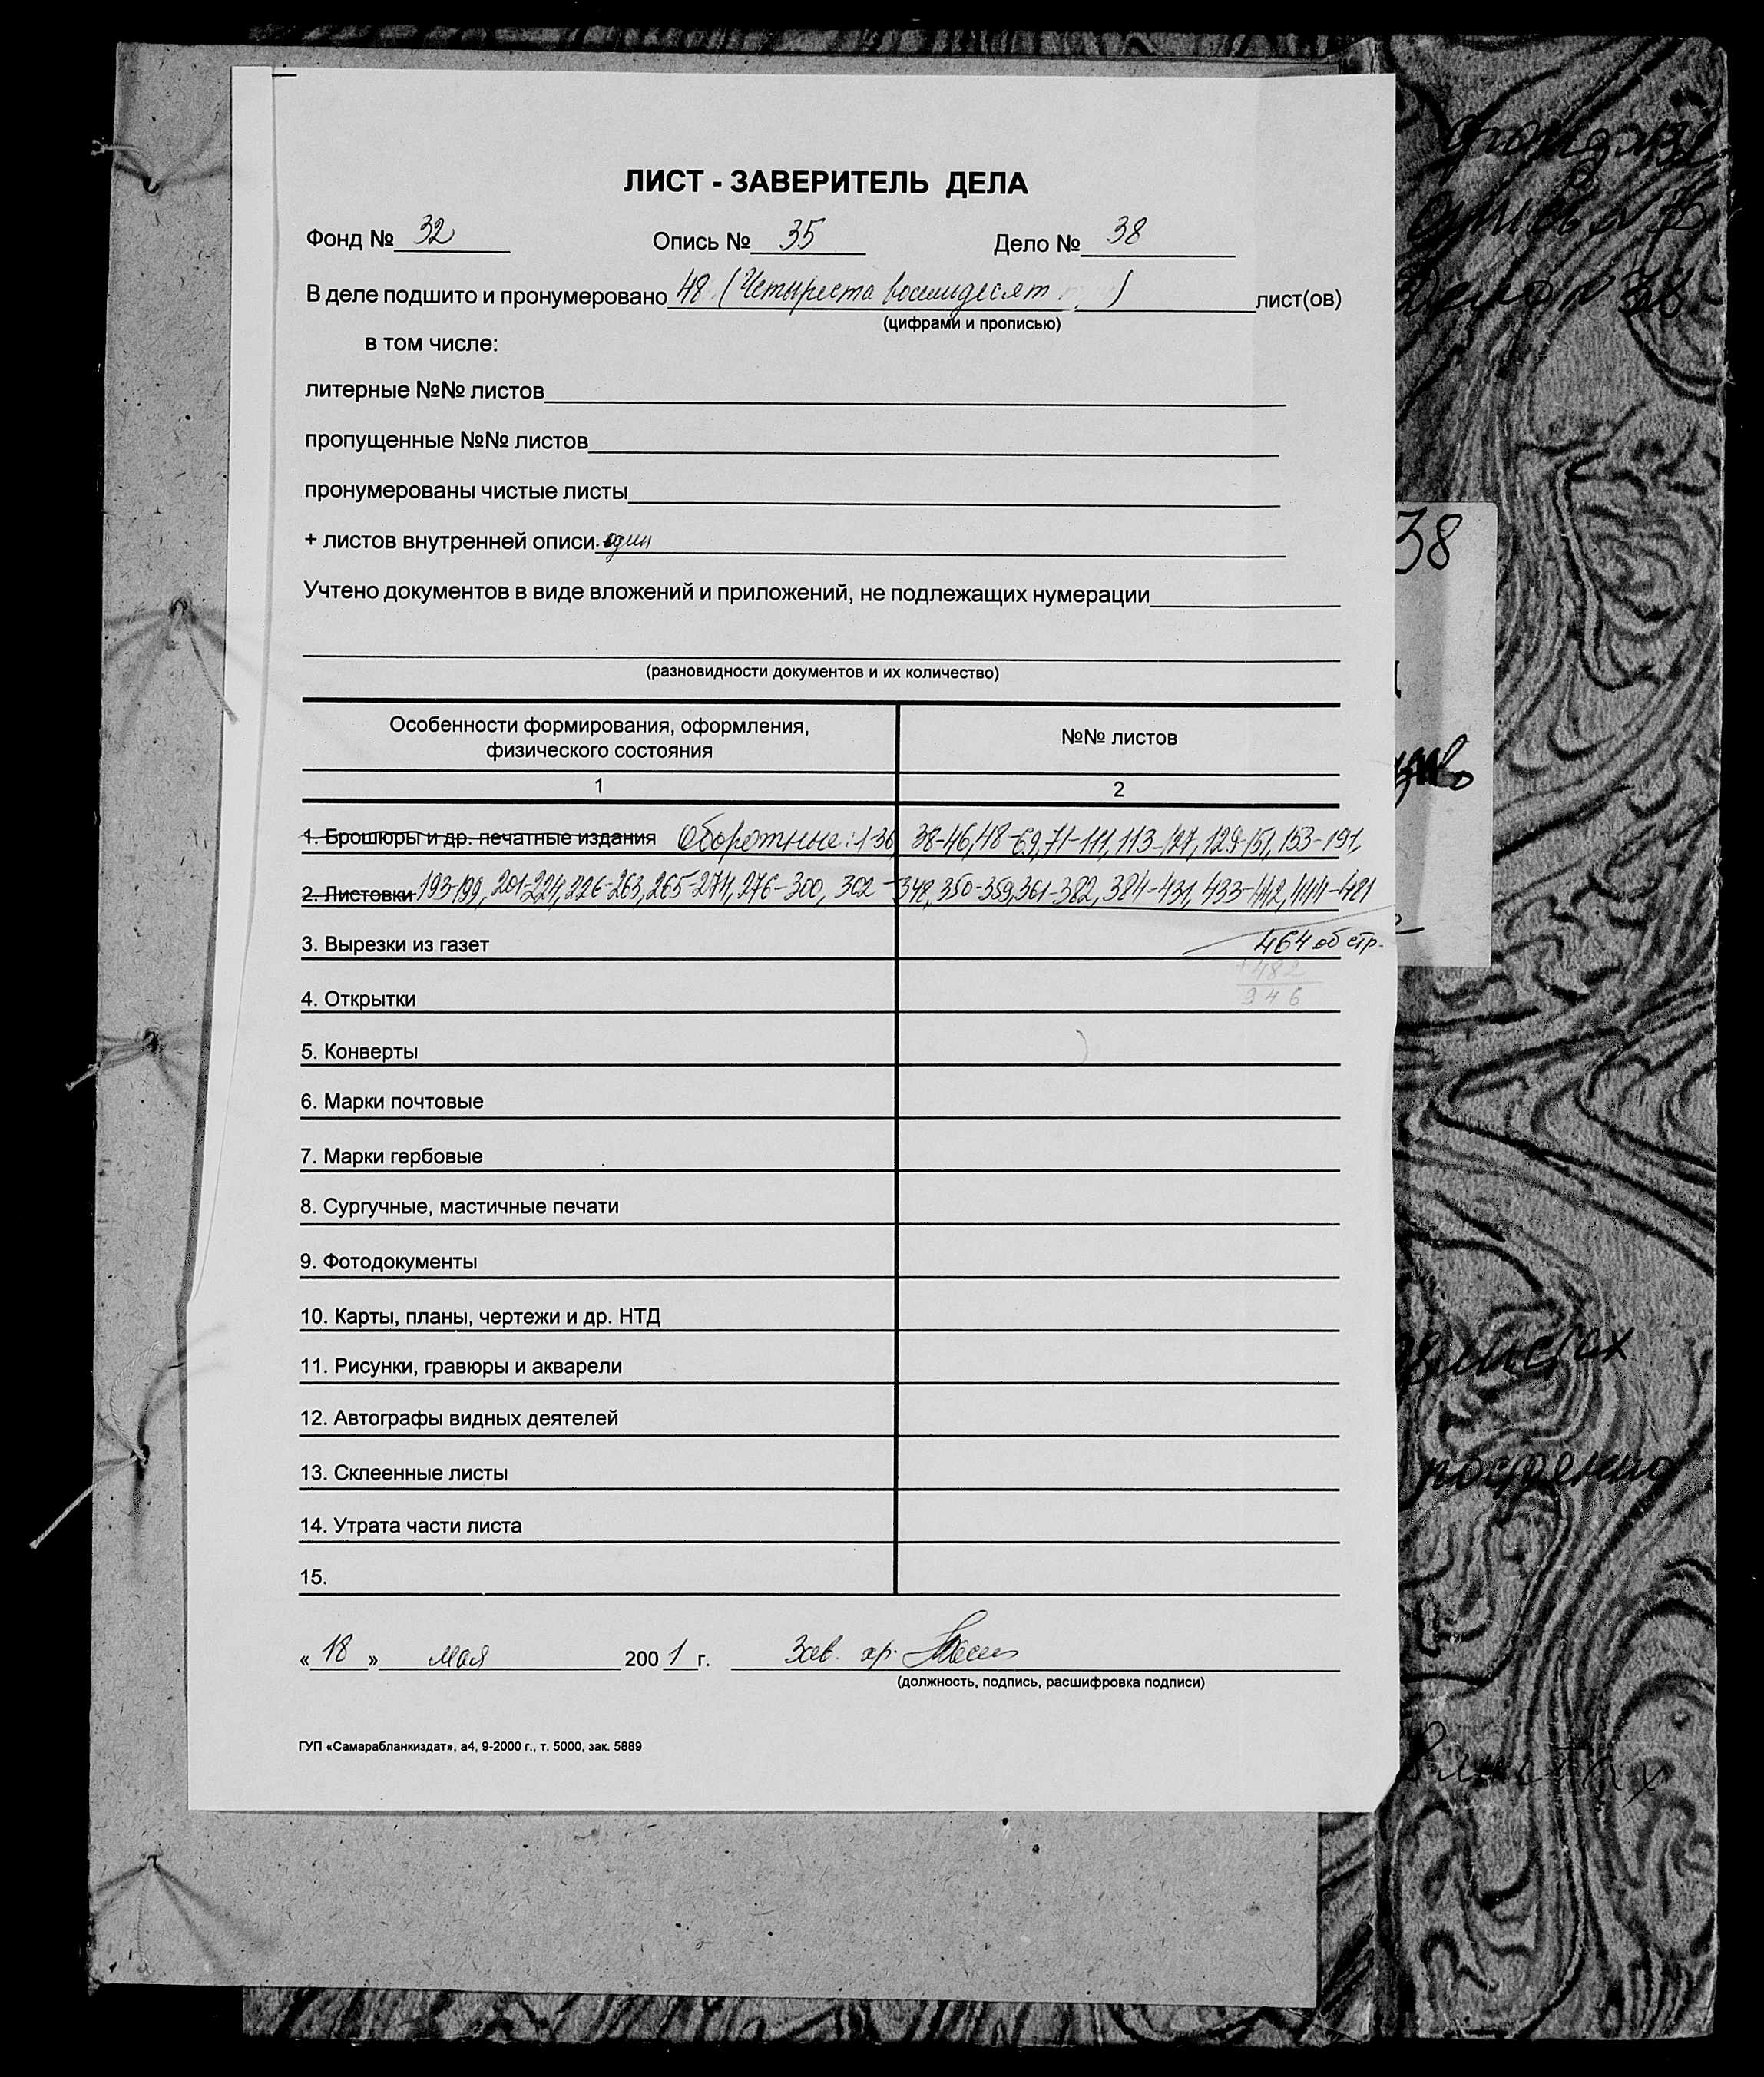 ЛИСТ - ЗАВЕРИТЕЛЬ ДЕЛА
Фонд № 32 Опись № 35 Дело № 38
В деле подшито и пронумеровано 48 (Четыреста восемьдесят ) лист(ов)
(цифрами и прописью)
в том числе:
литерные №№ листов
пропущенные №№ листов
пронумерованы чистые листы
+ листов внутренней описи один
Учтено документов в виде вложений и приложений, не подлежащих нумерации
(разновидности документов и их количество)
Особенности формирования, оформления, физического состояния №№ листов
1 2
1. Брошюры и др. печатные издания Оборотные: 1-36, 38-46, 48-69, 71-111, 113-127, 129-151, 153-191,
2. Листовки 193-199, 201-224, 226-263, 265-274, 276-300, 302-348, 350-359, 361-382, 384-431, 433-442, 444-481
3. Вырезки из газет 464 об стр.
+482
946
4. Открытки
5. Конверты
6. Марки почтовые
7. Марки гербовые
8. Сургучные, мастичные печати
9. Фотодокументы
10. Карты, планы, чертежи и др. НТД
11. Рисунки, гравюры и акварели
12. Автографы видных деятелей
13. Склеенные листы
14. Утрата части листа
15.
« 18 » мая 2001 г. Зав. хр.
(должность, подпись, расшифровка подписи)
ГУП «Самарабланкиздат», а4, 9-2000 г., т. 5000, зак. 5889
Дело № 38
38
в листах